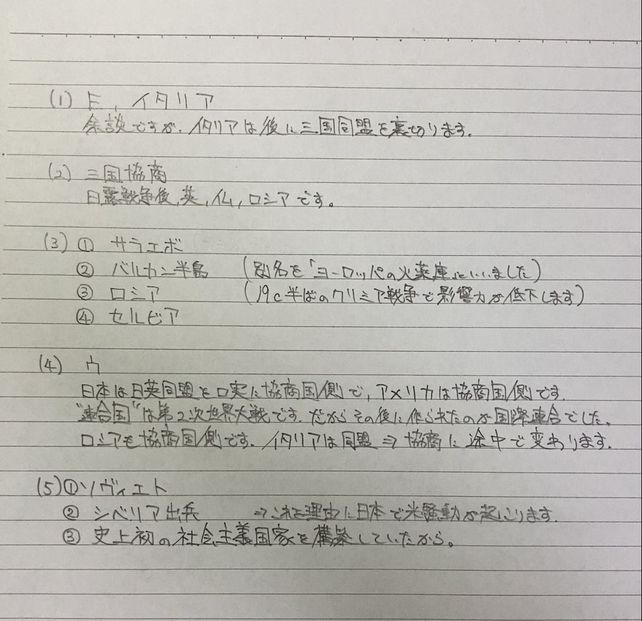 (1) E, イタリア
余談ですが、イタリアは後に三国同盟を裏切ります。
(2) 三国協商
日露戦争後、英, 仏, ロシアです。
(3) ① サラエボ
② バルカン半島 (別名を「ヨーロッパの火薬庫」といいました)
③ ロシア (19c半ばのクリミア戦争で影響力が低下します)
④ セルビア
(4) ウ
日本は日英同盟を口実に協商国側で、アメリカは協商国側です。
"連合国"は第2次世界大戦です。だからその後に作られたのが国際連合でした。
ロシアも協商国側です。イタリアは同盟⇒協商に途中で変わります。
(5) ① ソヴィエト
② シベリア出兵 →これを理由に日本で米騒動が起こります。
③ 史上初の社会主義国家を構築していたから。